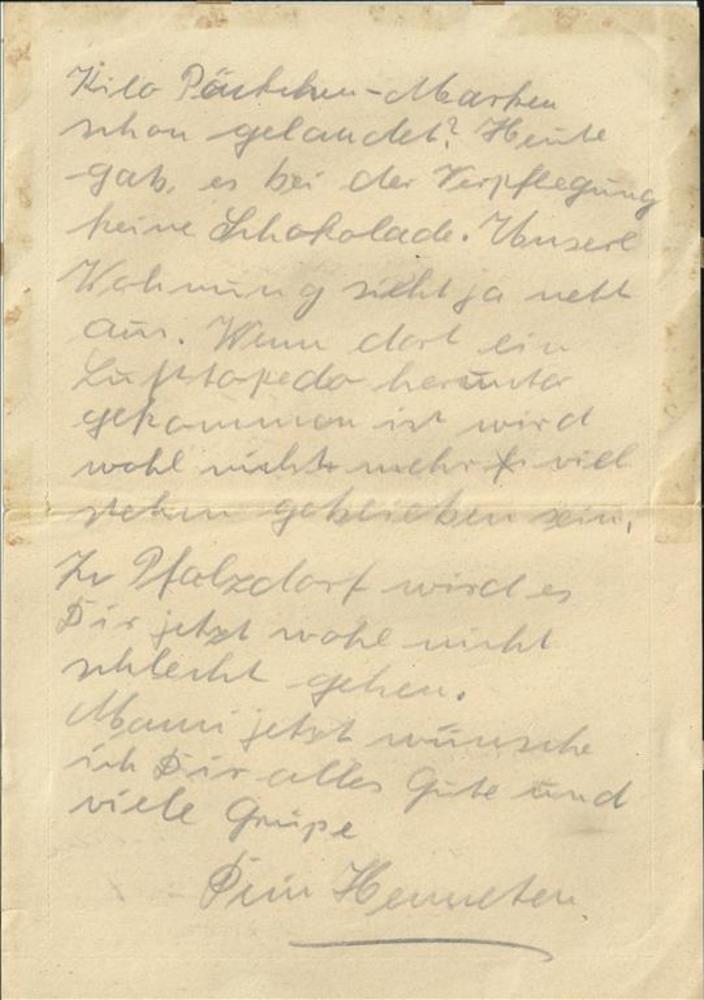 Kilo Päckchen-Marken
schon gelandet? Heute
gab, es bei der Verpflegung
keine Schokolade. Unsere
Wohnung sieht ja nett
aus. Wenn dort ein
Lufttopedo herunter
gekommen ist wird
wohl nicht mehr viel
stehen geblieben sein.
In Pfalzdorf wird es
Dir jetzt wohl nicht
schlecht gehen.
Mami jetzt wünsche
ich Dir alles Gute und
viele Grüße
Dein